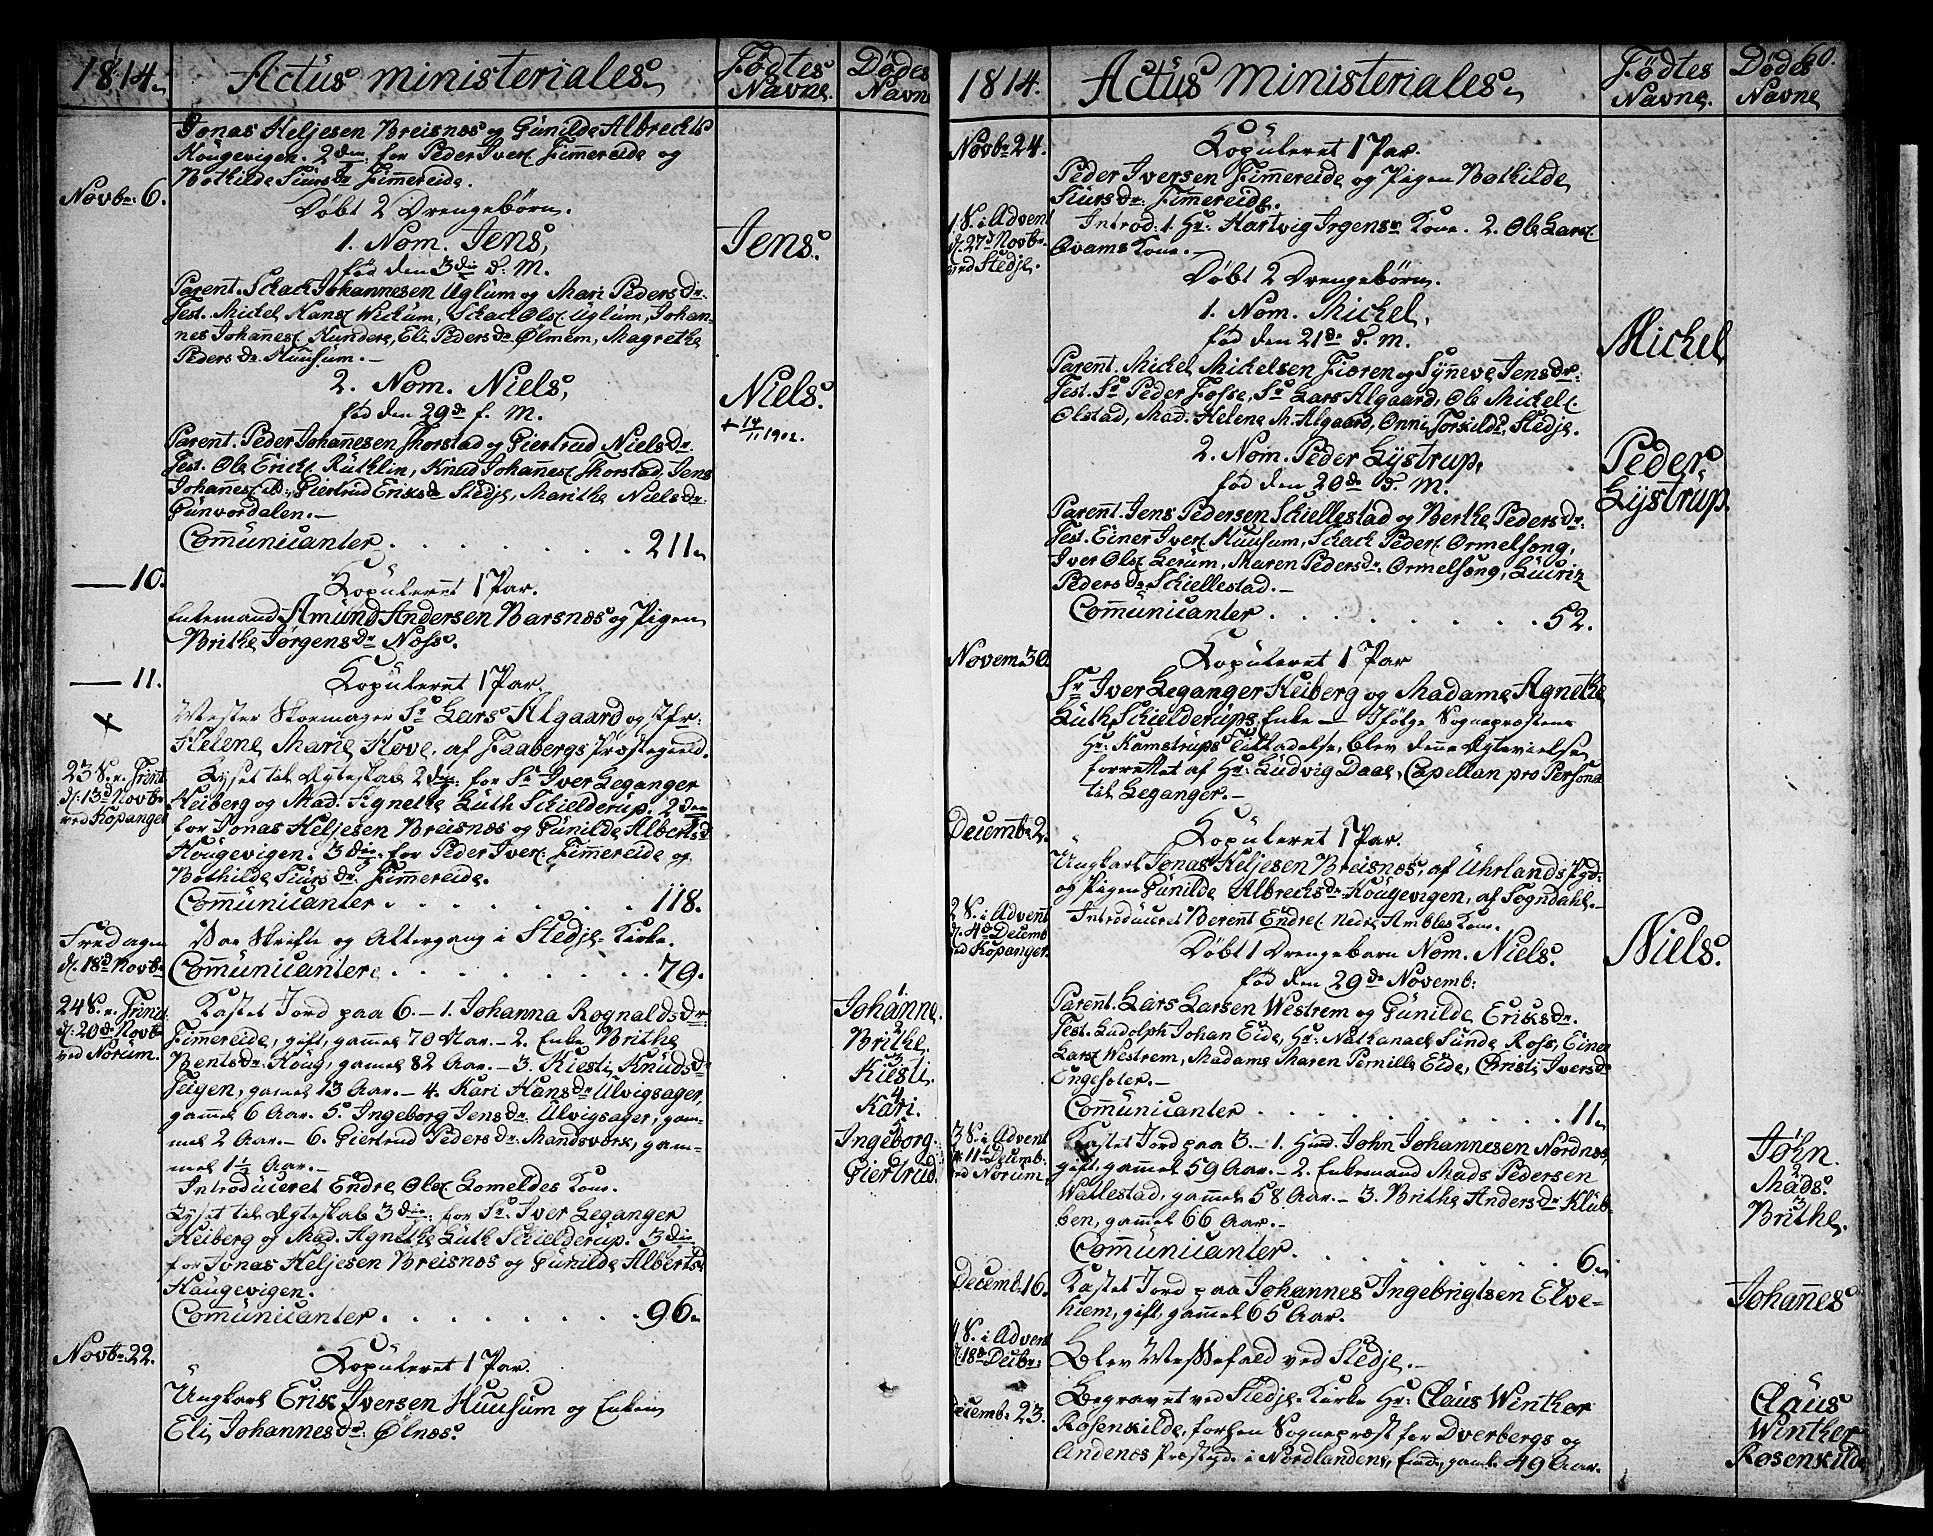 1814.
Actus ministeriales.
Fødtes Navne.
Dødes Navne
Jonas Heljesen Breisnæs og Gunilde Albrechts
Hougevigen. 2den: for Peder Ivers. Fimmereide og
Bothilde Siursdr. Fimmereide.
Novbr: 6.
Døbt 2 Drengebørn.
1. Nom. Jens,
Jens.
fød den 3die d: M.
Parent. Schack Johannesen Uglum og Mari Pedersdr.
Test. Michel Hans. Wichum, Schack Ols. Uglum, Johan-
nes Johannes. Hundere, Eli Pedersdr. Ølmem, Magrethe
Pedersdr. Huusum.
2. Nom. Niels,
Niels.
fød den 29de f. M.
+ 14/11 1902.
Parent. Peder Johannesen Thorstad og Giertrud Nielsdr.
Test. Ole Erichs. Ruthlin, Knud Johannes. Thorstad, Jens
Johannes. ib., Giertrud Eriksdr. Stedje, Marithe Nielsdr.
Gunvordalen.
Communicanter . . . . . . . 211.
— 10.
Kopuleret 1 Par.
Enkemand Amund Andersen Barsnæs og Pigen
Brithe Jørgensdr. Noss.
— 11.
Kopuleret 1 Par.
Mester Skoemager Sr. Lars Algaard og Jfr:
Helene Marie Hove, af Faabergs Præstegield.
23 S. e. Trinit
d: 13d Novbr
ved Kopanger
Lyset til Ægteskab 2den: for Sr. Iver Leganger
Heiberg og Mad. Agnethe Luth Schielderup. 2den
for Jonas Heljesen Breisnæs og Gunilde Albertsd
Hougevigen. 3die: for Peder Ivers. Fimmereide og
Bothilde Siursdr. Fimmereide.
Communicanter . . . . . . . 118.
Fredagen
d: 18d Novbr
Var Skrifte og Altergang i Stedje Kirke.
Communicantere . . . . . . . 79.
24 S. e. Trinit:
d: 20de Novbr
ved Norum.
Kastet Jord paa 6. - 1. Johanna Rognaldsdr:
Fimereide, gift, gammel 70 Aar. - 2. Enke Brithe
Bentsdr. Houg, gamel 82 Aar. - 3. Kiesti Knudsdr
Seigen, gamel 13 Aar. - 4. Kari Hansdr. Ulvigsager,
gammel 6 Aar. 5. Ingeborg Jensdr. Ulvigsager, gam-
mel 2 Aar. - 6. Giertrud Pedersdr. Mandsverk, gam-
mel 1½ Aar.
Johanne.
2
Brithe.
3
Kiesti.
4
Kari.
5
Ingeborg.
Giertrud.
Introduceret Endre Ols. Lomeldes Kone.
Lyset til Ægteskab 3die: for Sr. Iver Leganger
Heiberg og Mad. Agnethe Luth Schielderup. 3die
for Jonas Heljesen Breisnæs og Gunilde Albertsd
Haugevigen.
Communicanter . . . . . . . 96.
Novbr: 22.
Kopuleret 1 Par.
Ungkarl Erik Iversen Huusum og Enken
Eli Johannesdr: Ølnæs.
1814.
Actus ministeriales.
Fødtes Navne.
Dødes Navne
60.
Novbr 24.
Kopuleret 1 Par.
Peder Iversen Fimmereide og Pigen Bothilde
Siursdr: Fimmereide.
1 S. i Advent
d: 27d Novbr.
ved Stedje.
Introd: 1. Hr: Hartvig Irgensen Kone. 2. Ole Lars.
Qvams Kone.
Døbt 2 Drengebørn.
1. Nom. Michel,
Michel
fød den 21de d. M.
Parent. Michel Michelsen Fiøren og Syneve Jensdr:
Test. Sr. Peder Fosse, Sr. Lars Algaard, Ole Michels.
Olstad, Mad. Helene M. Algaard, Onni Torkildsdr. Stedje.
2. Nom. Peder Lystrup,
Peder
Lystrup.
fød den 20de d. M.
Parent. Jens Pedersen Schiellestad og Berthe Pedersdr.
Test. Einer Ivers. Huusum, Schack Peders. Ormelsong,
Iver Ols. Lerum, Maren Pedersdr. Ormelsong, Luiriz
Pedersdr. Schiellestad.
Communicanter . . . . . . . 52.
Novem: 30.
Kopuleret 1 Par
Sr. Iver Leganger Heiberg og Madame Agnethe
Luth Schielderups Enke — Ifølge Sognepræstens
Hr: Kamstrups Tilladelse, blev denne Ægtevielse
forrettet af Hr: Ludvig Daae, Capellan pro Persona
til Leganger.
Decembr 2.
Kopuleret 1 Par.
Ungkarl Jonas Heljesen Breisnæs, af Uhrlands Pgd:
og Pigen Gunilde Albrechsdr. Hougevigen, af Sogndahl.
2 S. i Advent
d: 4de Decemb
ved Kopanger
Introduceret Berent Endres. Nedre Ambles Kone.
Døbt 1 Drengebarn Nom. Niels.
Niels.
fød den 29de Novemb:
Parent. Lars Larsen Westrem og Gunilde Eriksdr.
Test. Ludolph Johan Eide, Hr: Nathanael Sunde Ross, Einer
Lars. Westrem, Madame Maren Pernille Eide, Christi Iversdr
Engesæter.
Communicanter . . . . . . . 11.
3 S. i Advent
d: 11te Decemb:
ved Norum.
Kastet Jord paa 3. - 1. Huusmd. John Johannesen Nordnæs,
gift, gammel 59 Aar. - 2. Enkemand Mads Pedersen
Wallestad, gammel 58 Aar. - 3. Brithe Andersdr. Klub-
ben, gammel 66 Aar.
1
John.
2
Mads.
3
Brithe.
Communicanter . . . . . . . 6.
Decemb: 16.
Kastet Jord paa Johannes Ingebrigtsen Elve-
hiem, gift, gammel 65 Aar.
Johannes
4 S. i Advent
d: 18de Decbr:
Blev Messefald ved Stedje.
Decemb: 23.
Begravet ved Stedje Kirke Hr: Claus Winther
Rosenkilde, forhen Sognepræst for Dverbergs og
Andenæs Præstgd. i Nordlandene, Enkem., gamle 49 Aar.
Claus
Winther
Rosenkilde